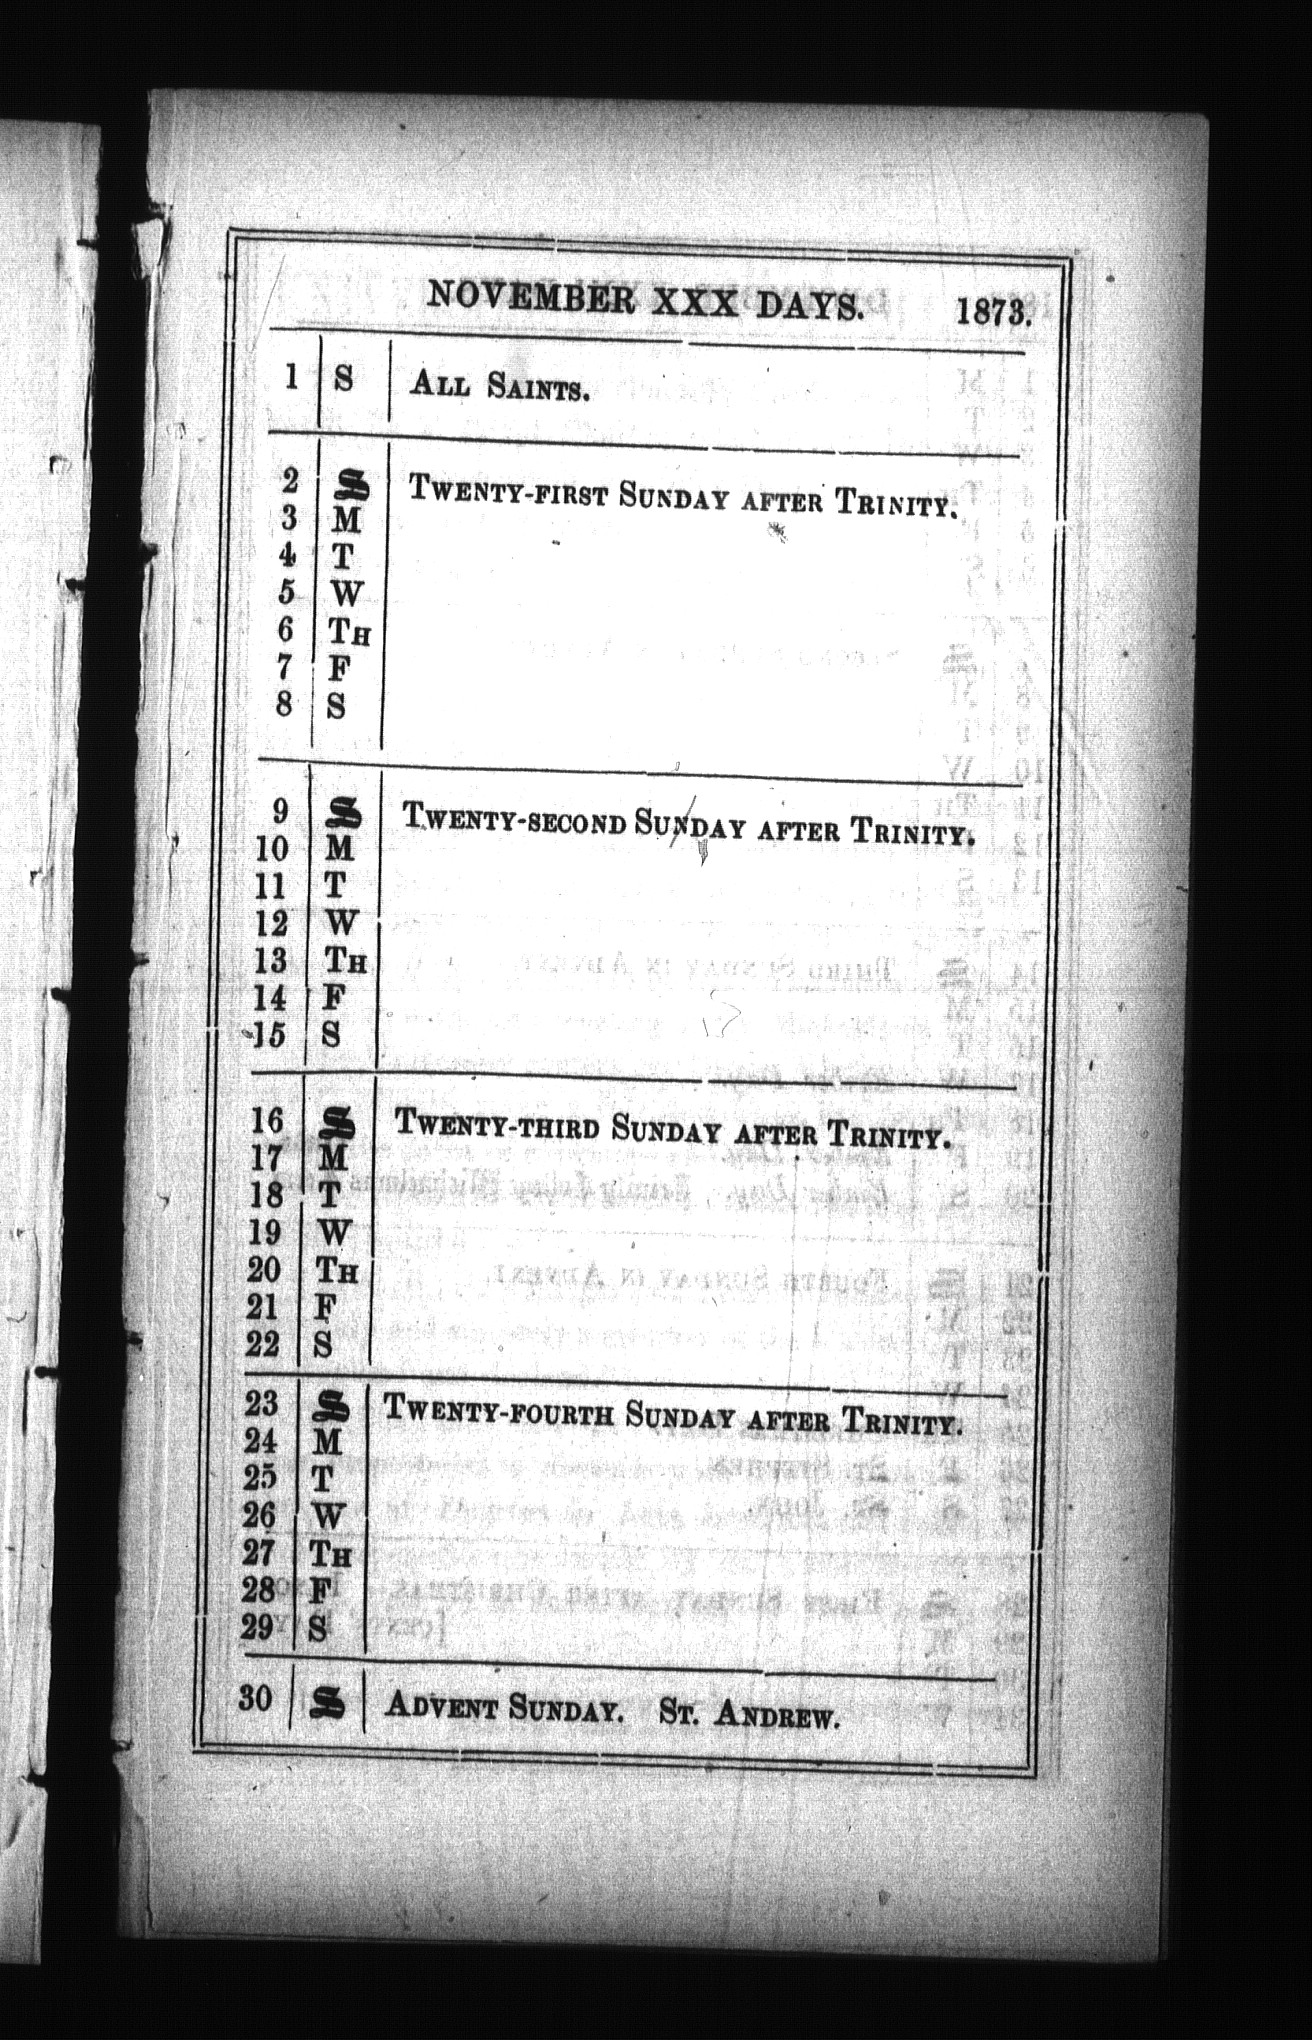 NOVEMBER XXX DAYS. 1873.
1 S ALL SAINTS.
2 S TWENTY-FIRST SUNDAY AFTER TRINITY.
3 M
4 T
5 W
6 TH
7 F
8 S
9 S TWENTY-SECOND SUNDAY AFTER TRINITY.
10 M
11 T
12 W
13 TH
14 F
15 S
16 S TWENTY-THIRD SUNDAY AFTER TRINITY.
17 M
18 T
19 W
20 TH
21 F
22 S
23 S TWENTY-FOURTH SUNDAY AFTER TRINITY.
24 M
25 T
26 W
27 TH
28 F
29 S
30 S ADVENT SUNDAY. ST. ANDREW.